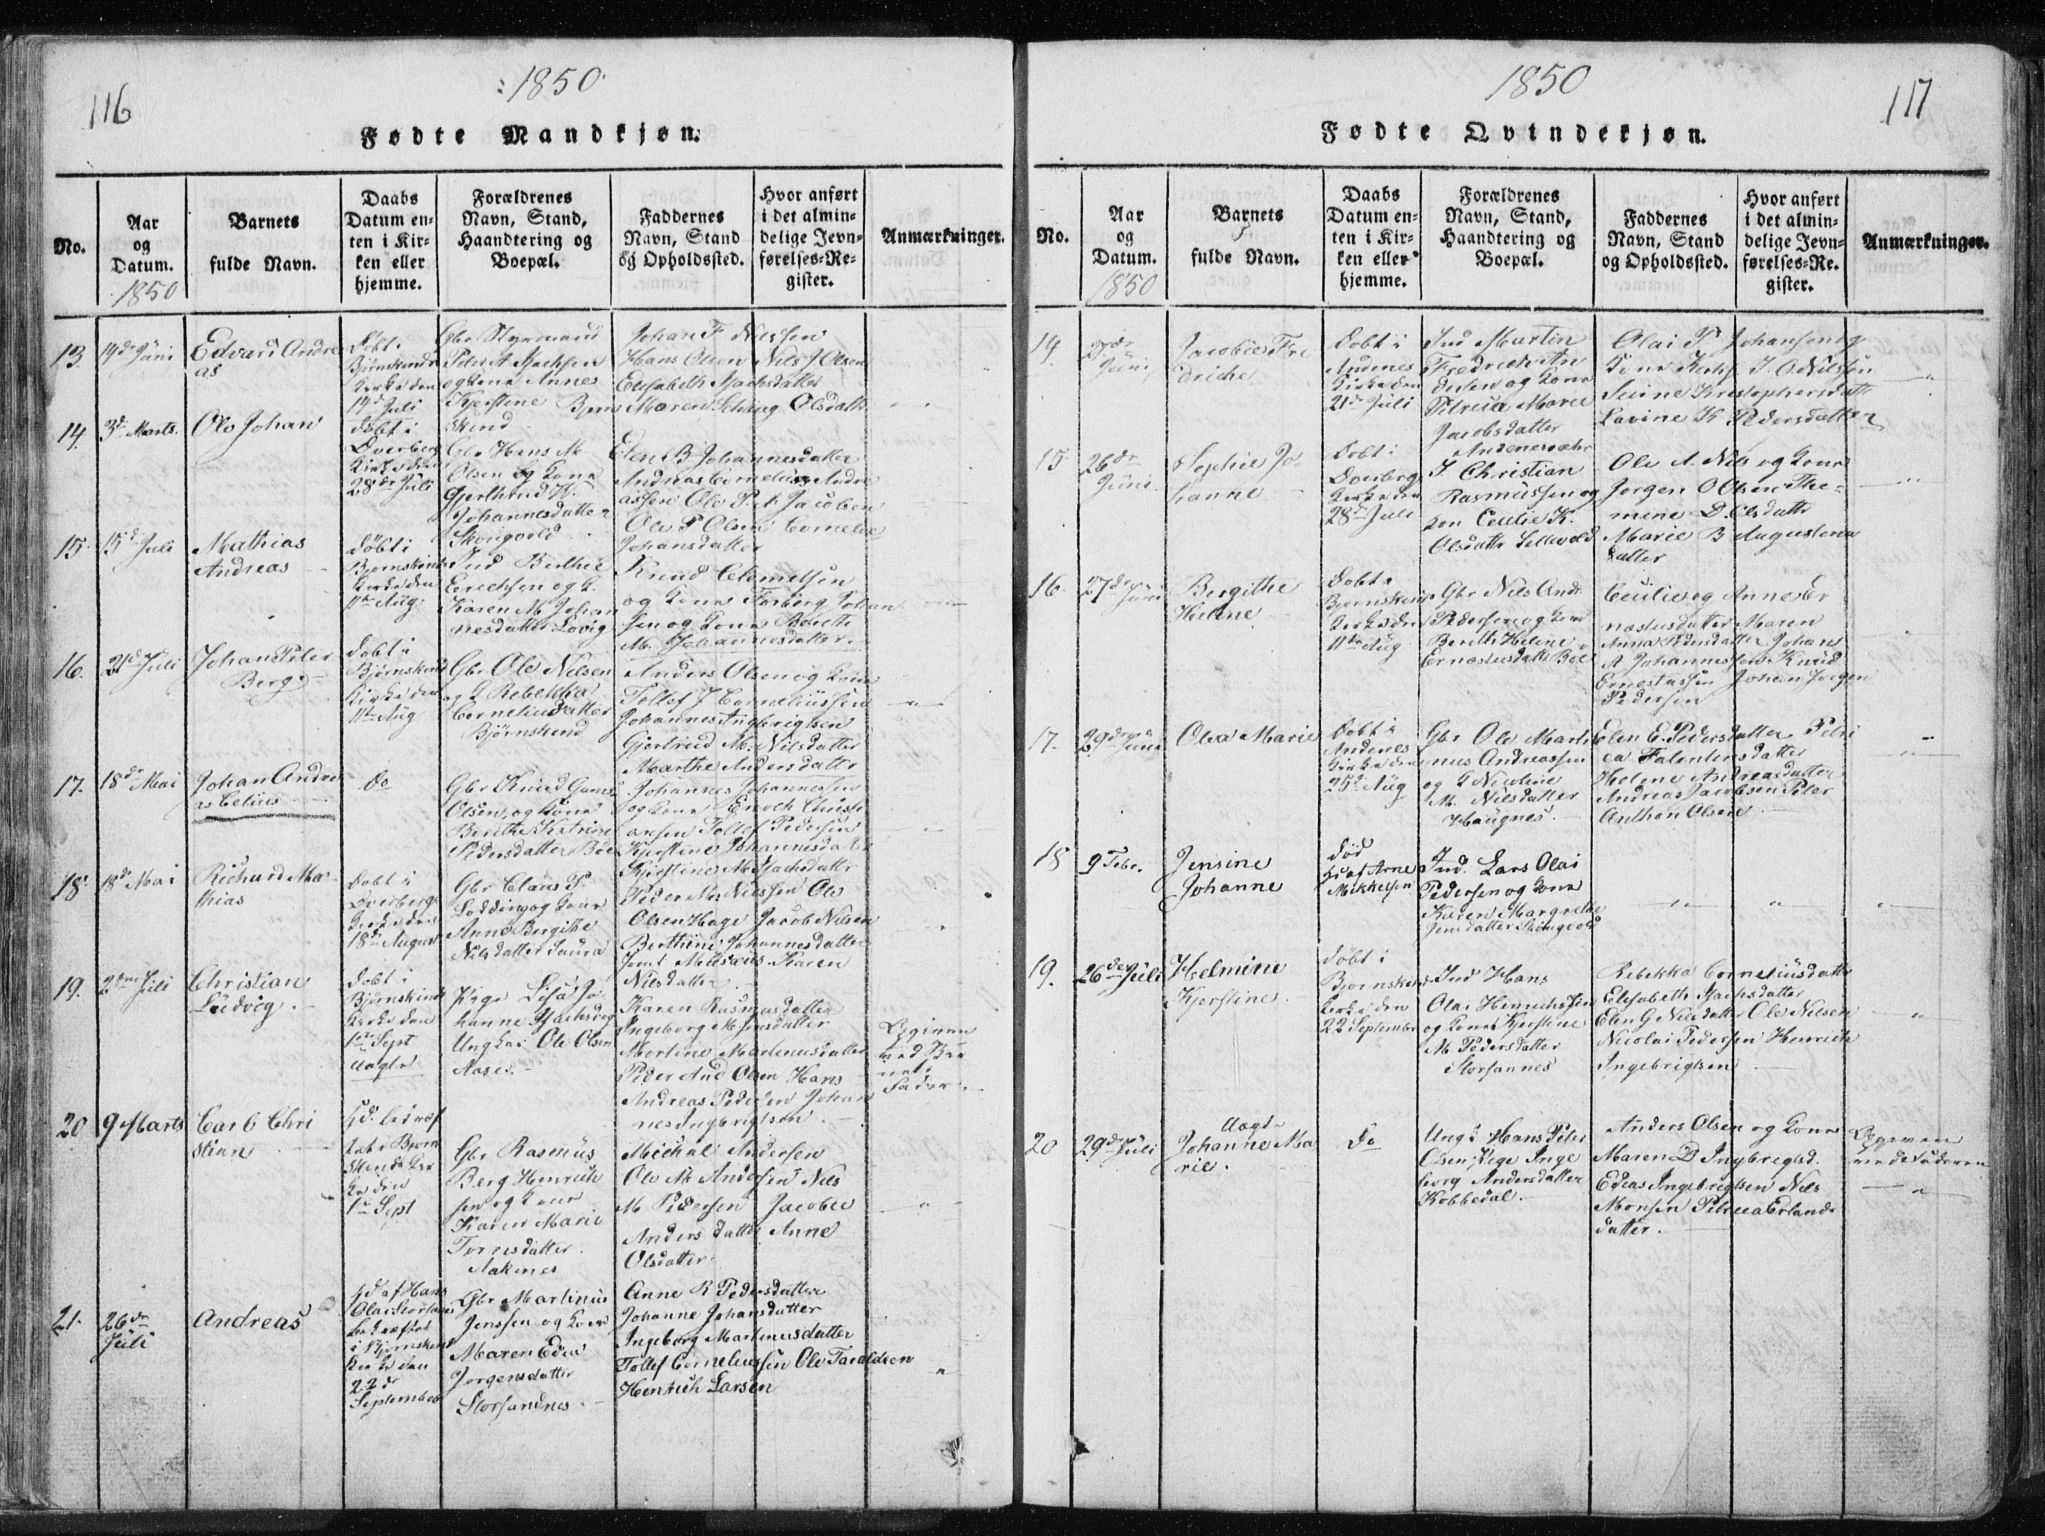 116
:1850.
Fødte Mandkjøn.
No.
Aar
og
Datum.
1850
Barnets
fulde Navn.
Daabs
Datum en-
ten i Kir-
ken eller
hjemme.
Forældrenes
Navn, Stand,
Haandtering og
Boepæl.
Faddernes
Navn, Stand
og Opholdssted.
Hvor anført
i det almin-
delige Jevn-
førelses-Re-
gister.
Anmærkninger.
13.
14d Juni
Edvard Andre
as
Døbt i
Bjørnskinds
Kirke den
14d Juli
Gbr Styrmand
Peter A Isachsen
og kona Annes
Kjerstine Bjørn
skind
Johan F Nilssen
Hans Olsen Nils J Olsen
Elisabeth Isachsdatter
Maren Olsdattr
14.
3d Marts.
Ole Johan
Døbt i
Dverberg
Kirke den
28de Juli
Gbr Hans M.
Olsen og kona
Gjertrud H.
Johannesdatter
Skongvold
Elen B Johannesdatter
Andreas Cornelius Andre
assen Ole P. Jacobsen
Ole P Olsen Cornelie
Johansdatter
15.
15d Juli
Mathias
Andreas
Døbt i
Bjørnskinds
Kirke den
11te Aug:
Ind Berthee
Erichsen og k.
Karen M. Johan
nesdatter Lovig
Knud Clemetsen
og kona Johan
sen og kona Berith
M. Johannesdatter
16.
21d Juli
Johan Peter
Berg
Døbt i
Bjørnskind
Kirke den
11te Aug
Gbr Ole Nilsen
og k Rebekka
Corneliusdatter
Bjørnskind
Anders Olsen og kona
Tollef J Corneliussen
Johannes Ingbrigtsen
Gjertrud M. Nilsdatter
Marthe Andersdatter
17.
18de Mai
Johan Andre
as Celius
do
Gbr Knud Gams
Olsen, og kona
Berithe Katrine
Pedersdatter Böe
Johannes Johannessen
og kona Enoch Christi
ansen Tollef Pedersen
Kjerstine Johannesdatter
Kjerstine M. Isachsdatter
18.
18d Mai
Richard Ma-
thias
Døbt i
Dverbergs
Kirke den
18de August
Gbr Claus P.
Lodding og kona
Anne Bergithe
Nilsdatter Saura
Peder M. Nilssen Ole
Olsen Hage Jacob Nilsen
Berthine Johannesdatter
Karen
Nilsdatter
19.
2den Juli
Christian
Ludvig
Døbt i
Bjørnskinds
Kirke den
1ste Sept
uægte.
Pige Lisa Jo-
hanne Isachsdtr
Ungkar Ole Olsen
Aase.
Karen Rasmusdatter
Ingeborg M. Jensdatter
Martine Martinusdatter
Peder And Olsen Hans
Andreas Pedersen Johan
nes Ingbrigtsen
Opgiven
ved Bar
nets
Fader
20
9 Marts
Carl O Chri
stian
hd. bekræf
tet i Bjørn
skinds Kir
ke den
1ste Sept
Gbr Rasmus
Berg Henrich
sen og kona
Karen Marie
Tornesdatter
Aaknes
Michal Andersen
Ole M. Andersen Nils
M. Pedersen Jacobee
Anders datter Anne
Olsdatter
21.
26de
Juli
Andreas
hd af Hans
Olai Storsandnes
bekræftet
i Bjørnskind
Kirke den
22de
September
Gbr Martinus
Jenssen og kona
Maren Edea
Jørgensdatter
Storsandnes.
Anne R Pedersdatter
Johanne Johansdatter
Ingeborg Martinusdatter
Tollef Corneliussen Ole Taraldsen
Henrich Larsen
117
1850
Fødte Qvindekjøn.
No.
Aar
og
Datum.
1850
Barnets
fulde Navn.
Daabs
Datum en-
ten i Kir-
ken eller
hjemme.
Forældrenes
Navn, Stand,
Haandtering og
Boepæl.
Faddernes
Navn, Stand
og Opholdssted.
Hvor anført
i det almin-
delige Jevn-
førelses-Re-
gister.
Anmærkninger.
14.
Juni
Jacobine Fre
deriche
Døbt i
Andenes
Kirke den
21d Juli
Ind Martin
Fredrich An
dersen og kona
Petrcia Marie
Jacobsdatter
Andenesvær
Olai P Johansen og
kona O Nilsen
Serine Kristophersdattr
Lavine H Pedersdatter
15
26de
Juni
Sophie Jo-
hanne
Døbt i
Dverberg
Kirke den
28d Juli
I Christian
Rasmussen og
kon Cecilie K.
Olsdattr Selvold
Ole A. Nils og kona
Jørgen O Olsen The-
mine D. Olsdattr
Marie B Augustina
datter
16.
27de Juni
Bergithe
Helene
Døbt i
Bjørnskind
Kirke den
11te Aug
Gbr Nils And
Pedersen og kona
Berith Helene
Ernestusdattr Böe
Cecilie og Anne Er
nestusdatter Maren
Anna Knudsdatter Johan
A Johannessen Knud
Ernestussen Johan Jørgen
Pedersen
17.
29de Juni
Olea Marie
Døbt i
Andenes
Kirke den
25de Aug
Gbr Ole Marti
nus Andreassen
og k Nicoline
M. Nilsdatter
Haugnes.
Elen E. Pedersdatter Petri
ca Falentinsdatter
Helene Andreasdatter
Andreas Jacobsen Peter
Anthon Olsen
18
9 Febr.
Jensine
Johanne
Død
hd af Arne
Mikkelsen
Ind. Lars Olai
Pedersen og kona
Karen Margrethe
Jensdatter Skongvold
19.
26de Juli
Helmine
Kjerstine
Døbt i
Bjørnskind
Kirke den
22 September
Ind Hans
Olai Henrichsen
og kona Kjerstine
M Pedersdatter
Storsannes
Rebekka Corneliusdatter
Elisabeth Isachsdatter
Elen G Nilsdatter Ole Nilsen
Nicolai Pedersen Henrich
Ingebrigtsen
20
29d Juli
Uægte
Johanne Ma
rie.
do
Ungk Hans Peter
Olsen, Pige Inge
borg Andersdatter
Kobbedal.
Anders Olsen og kona
Maren D Ingbregtsd.
Edeas Ingebrigtsen Nils
Monsen Petrea Erlands
datter.
Opgiven
ved Faderen